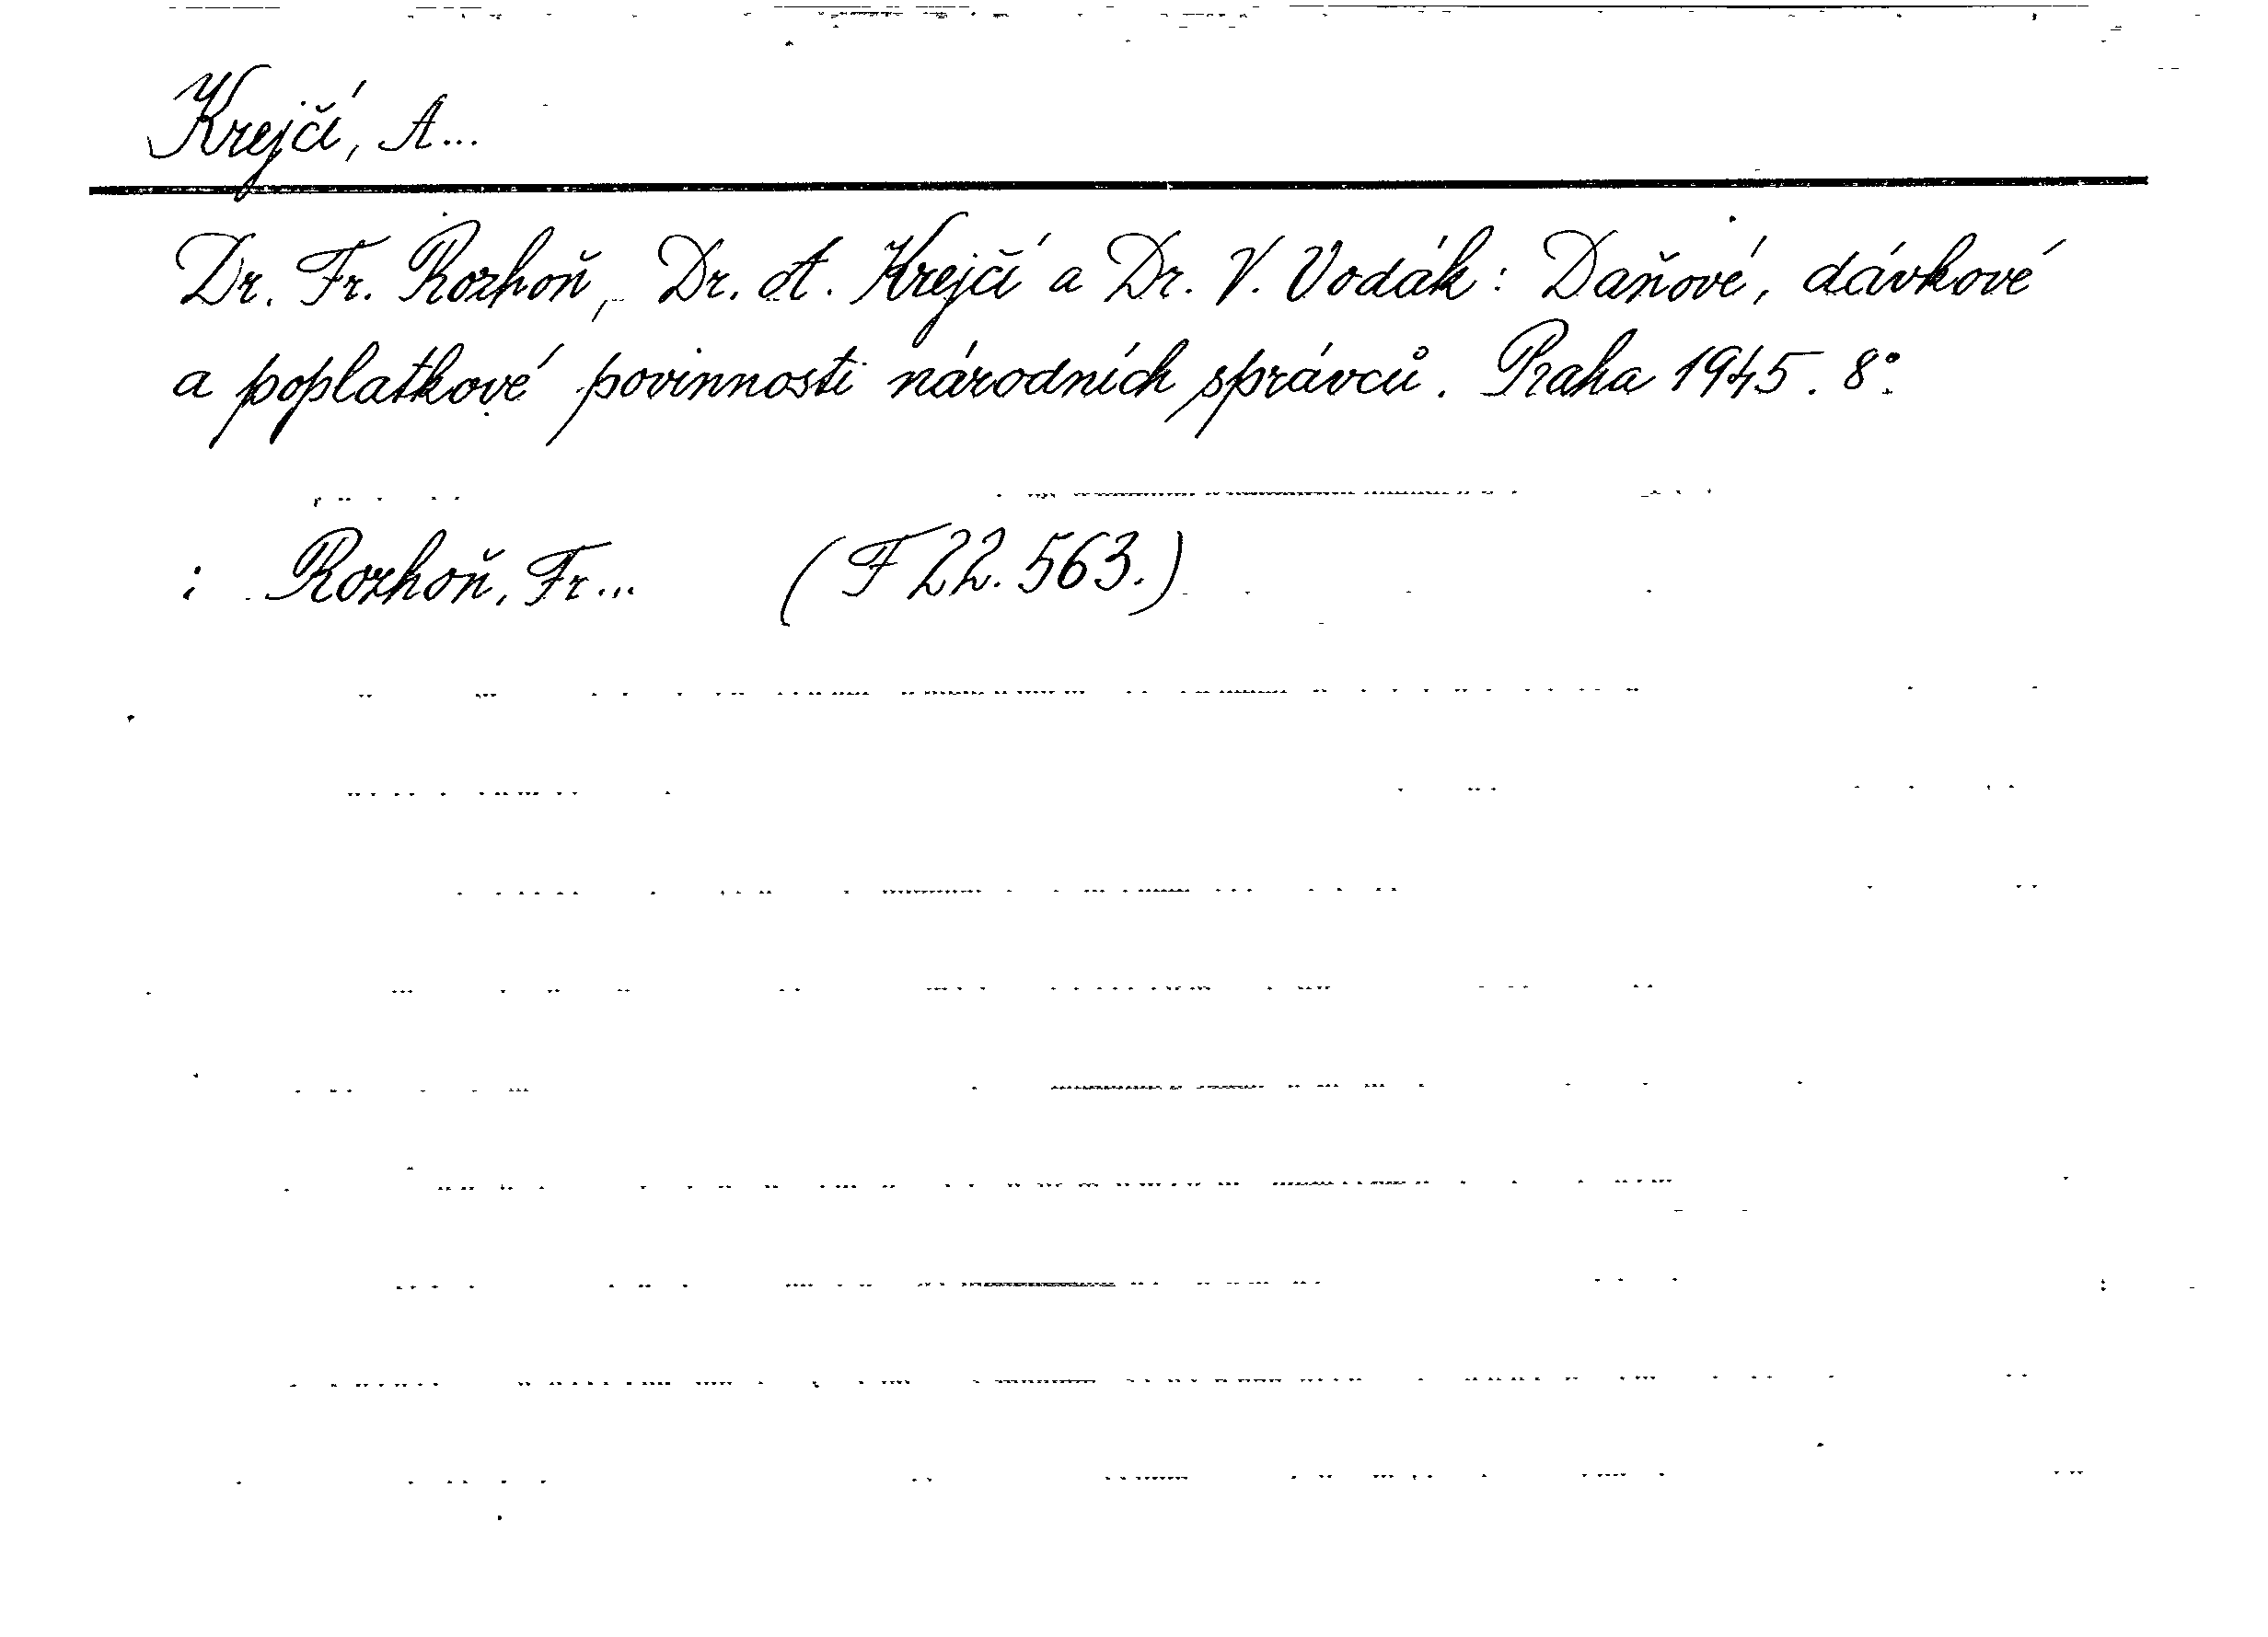 Krejčí, A...
Dr. Fr. Rozhoň, Dr. A. Krejčí a Dr. V. Vodák: Daňové, dávkové
a poplatkové povinnosti národních správců. Praha 1945. 8°.
: Rozhoň, Fr... (F 22.563.)